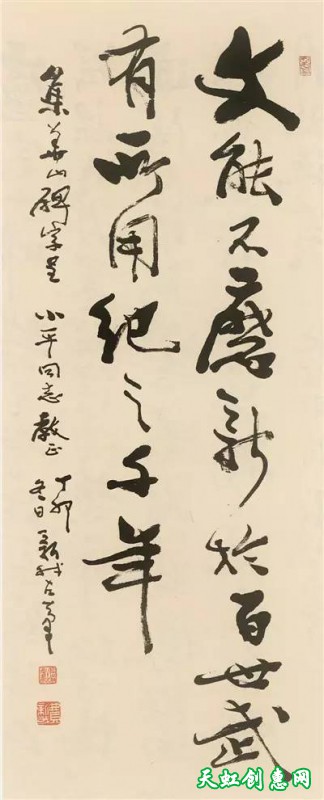 文能不磨新於百世武
有所用纪之千年
集華山碑字呈
小平同志教正
丁卯
冬日
天虹创惠网